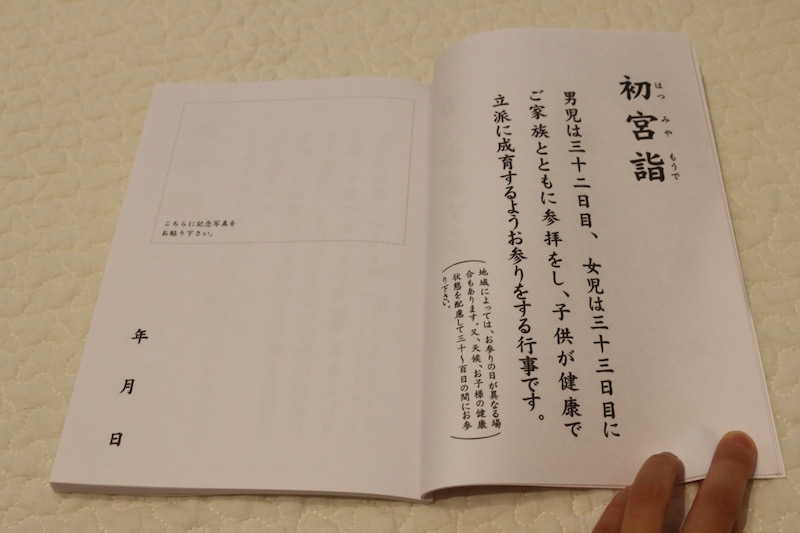 初宮詣
はつみやもうで
男児は三十二日目、女児は三十三日目に
ご家族とともに参拝をし、子供が健康で
立派に成育するようお参りをする行事です。
(地域によっては、お参りの日が異なる場
合もあります。又、天候、お子様の健康
状態を配慮して三十~百日の間にお参
り下さい。)
こちらに記念写真を
お貼り下さい。
年
月
日